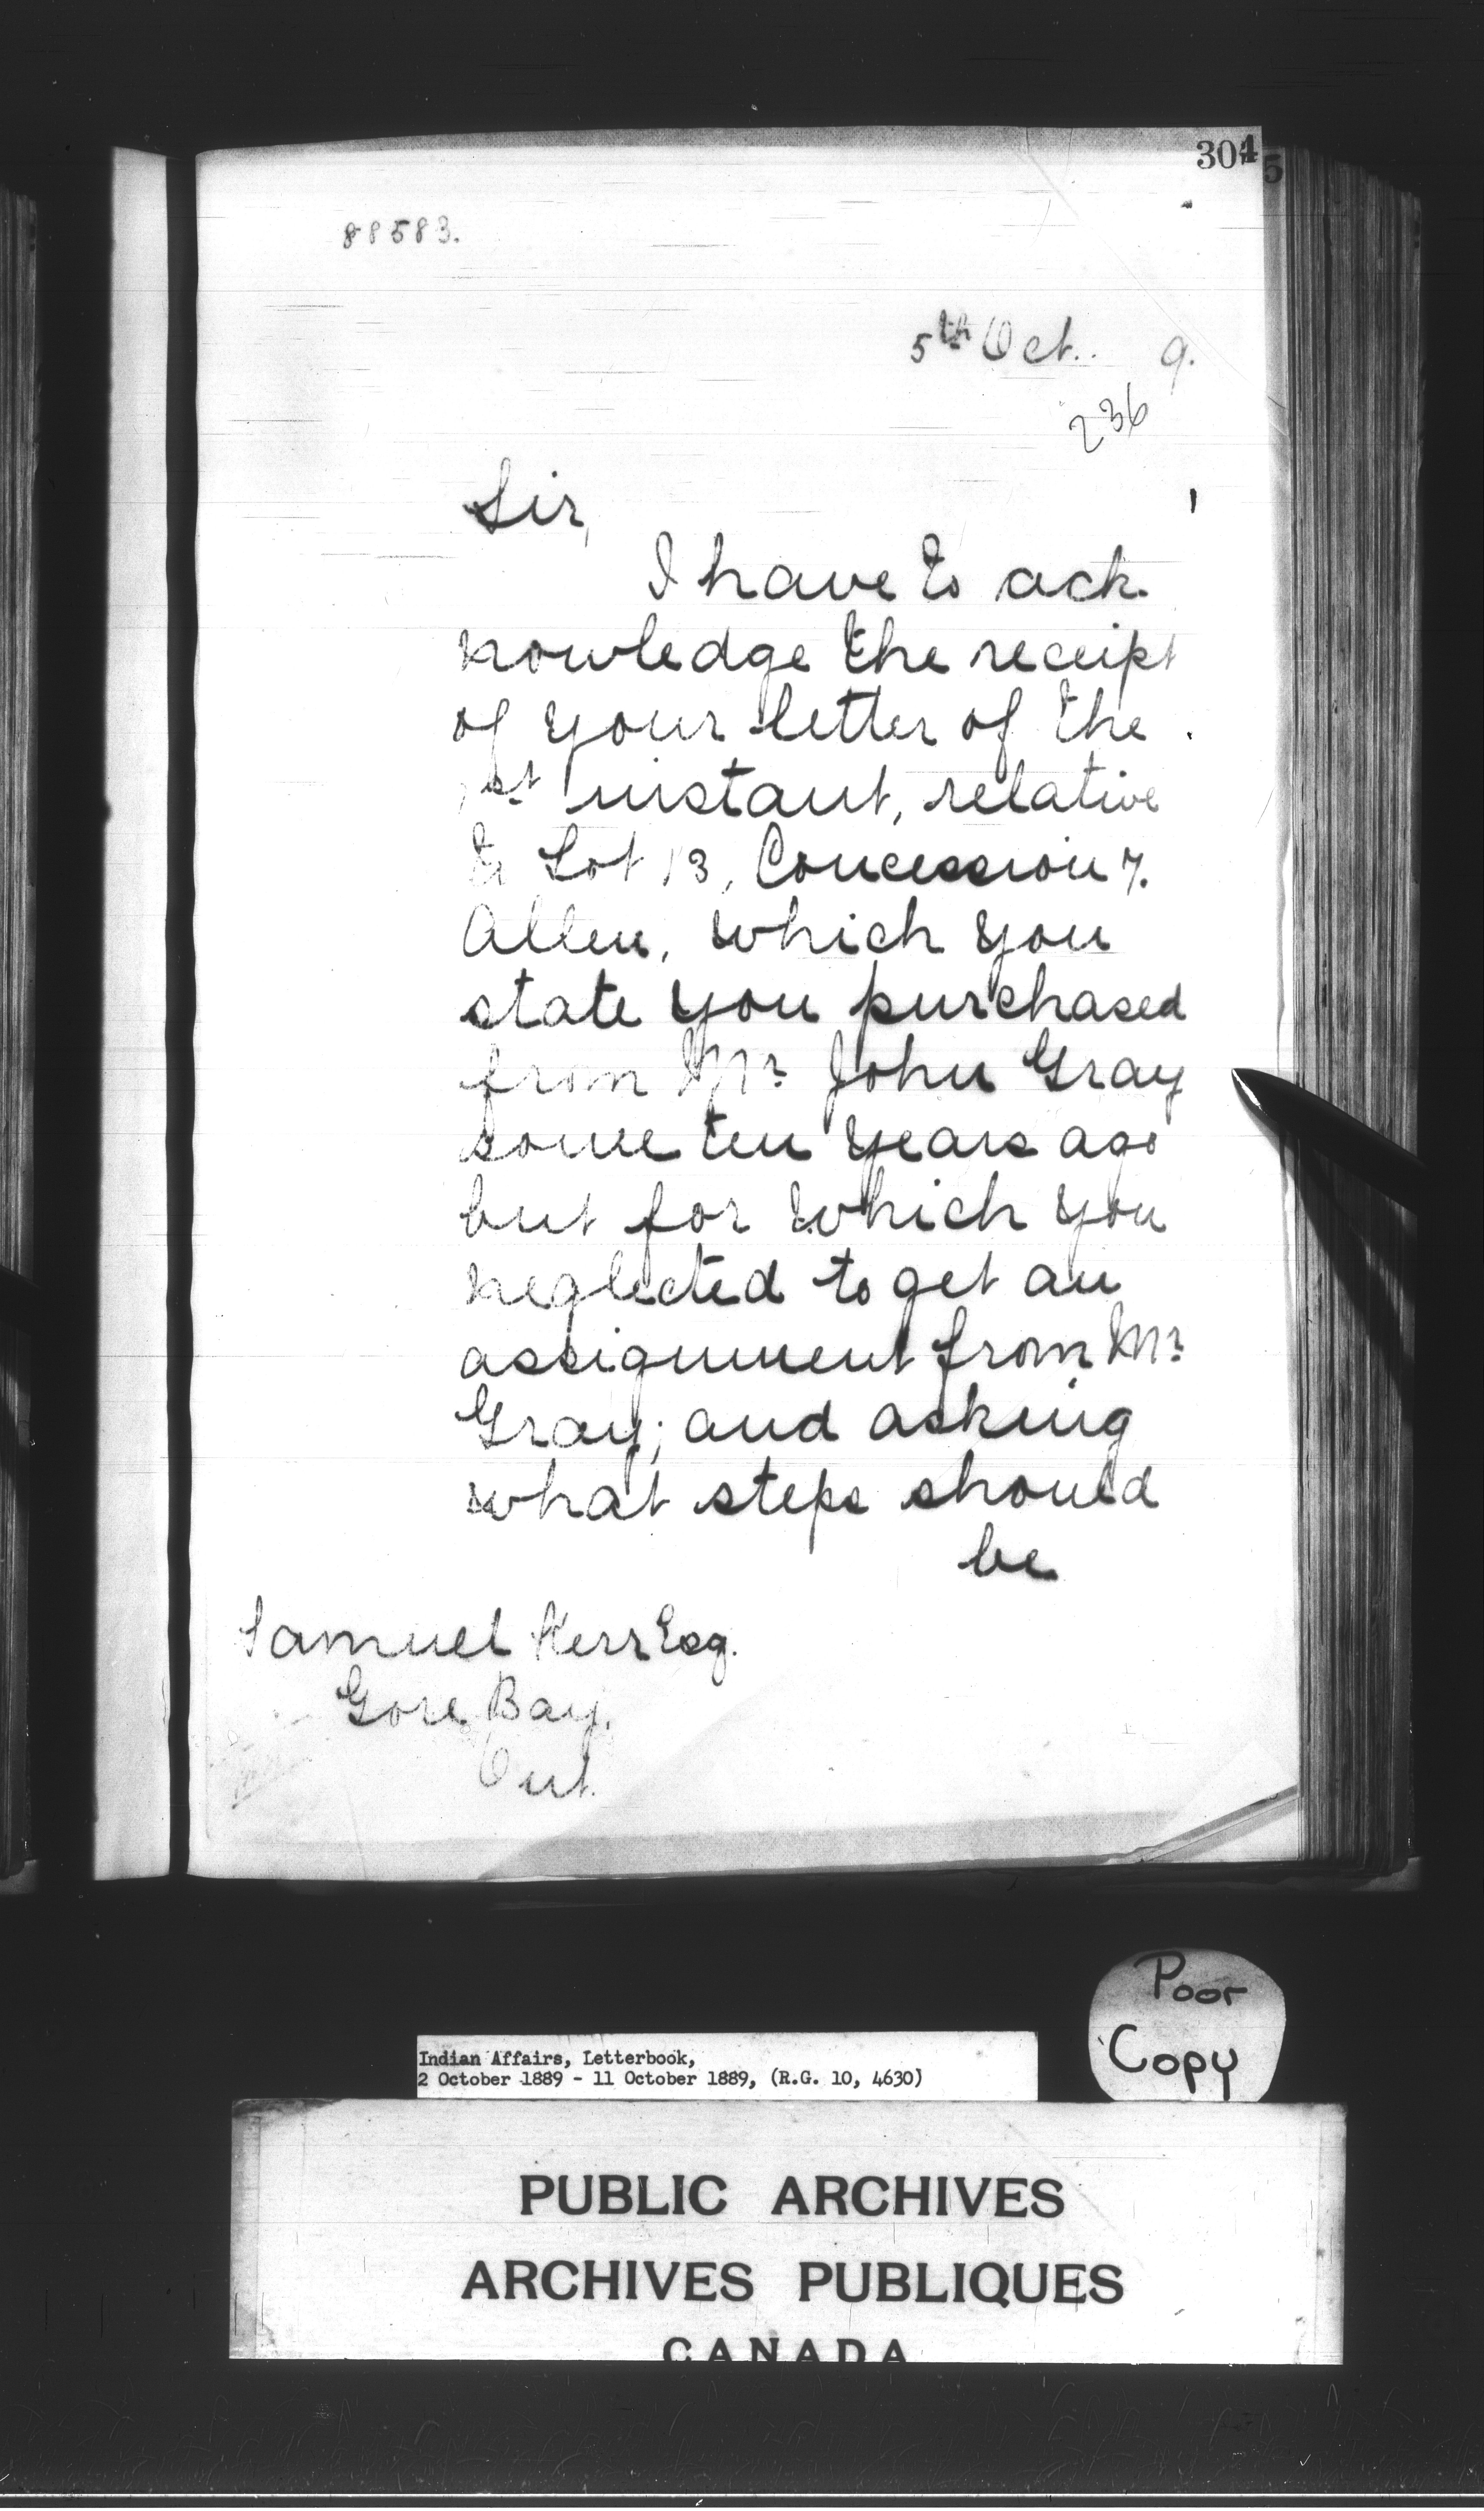 304
5
88583.
5th Oct. 9.
236
Sir,
I have to ack-
nowledge the receipt
of your letter of the
1st instant, relative
to Lot 13, Concession 7.
Allen, which you
state you purchased
from Mr John Gray
some ten years ago
but for which you
neglected to get an
assignment from Mr
Gray; and asking
what steps should
be
Samuel Kerr Esq.
Gore Bay,
Ont.
Poor
Copy
Indian Affairs, Letterbook,
2 October 1889 - 11 October 1889, (R.G. 10, 4630)
PUBLIC ARCHIVES
ARCHIVES PUBLIQUES
CANADA